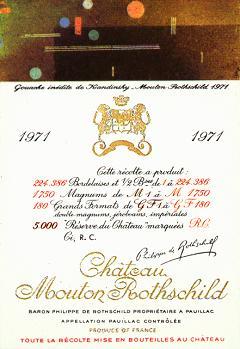 Gouache inédite de Kandinsky - Mouton Rothschild 1971
1971 1971
Cette récolte a produit:
224.386 Bordelaises et ½ Bses de 1 à 224.386
1.750 Magnums de M 1 à M 1750
180 Grands Formats de G F 1 à G F 180
double magnums, jeroboams, impériales
5000 Réserve du Château marquées R.C.
Ci, R. C.
Philippe de Rothschild
Château
Mouton Rothschild
BARON PHILIPPE DE ROTHSCHILD PROPRIÉTAIRE A PAUILLAC
APPELLATION PAUILLAC CONTRÔLÉE
PRODUCE OF FRANCE
TOUTE LA RÉCOLTE MISE EN BOUTEILLES AU CHÂTEAU